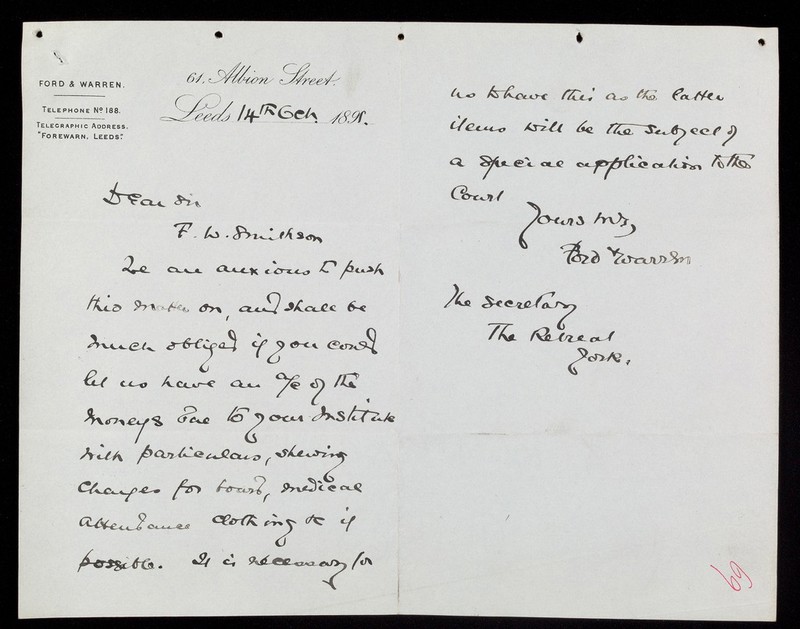 FORD & WARREN.
TELEPHONE No 188.
TELEGRAPHIC ADDRESS.
"FOREWARN, LEEDS."
61, Albion Street.
Leeds 14TH Oct. 1891.
Dear Sir
F. W. Smithson
We are anxious to push
this matter on, and shall be
much obliged if you could
let us have an a/c of the
moneys due to your Institute
with particulars, shewing
charges for board, medical
attendance clothing &c if
possible. It is necessary for
us to have this as the latter
items will be the subject of
a special application to the
Court
Yours trly,
Ford & Warren
The Secretary
The Retreat
York.
69